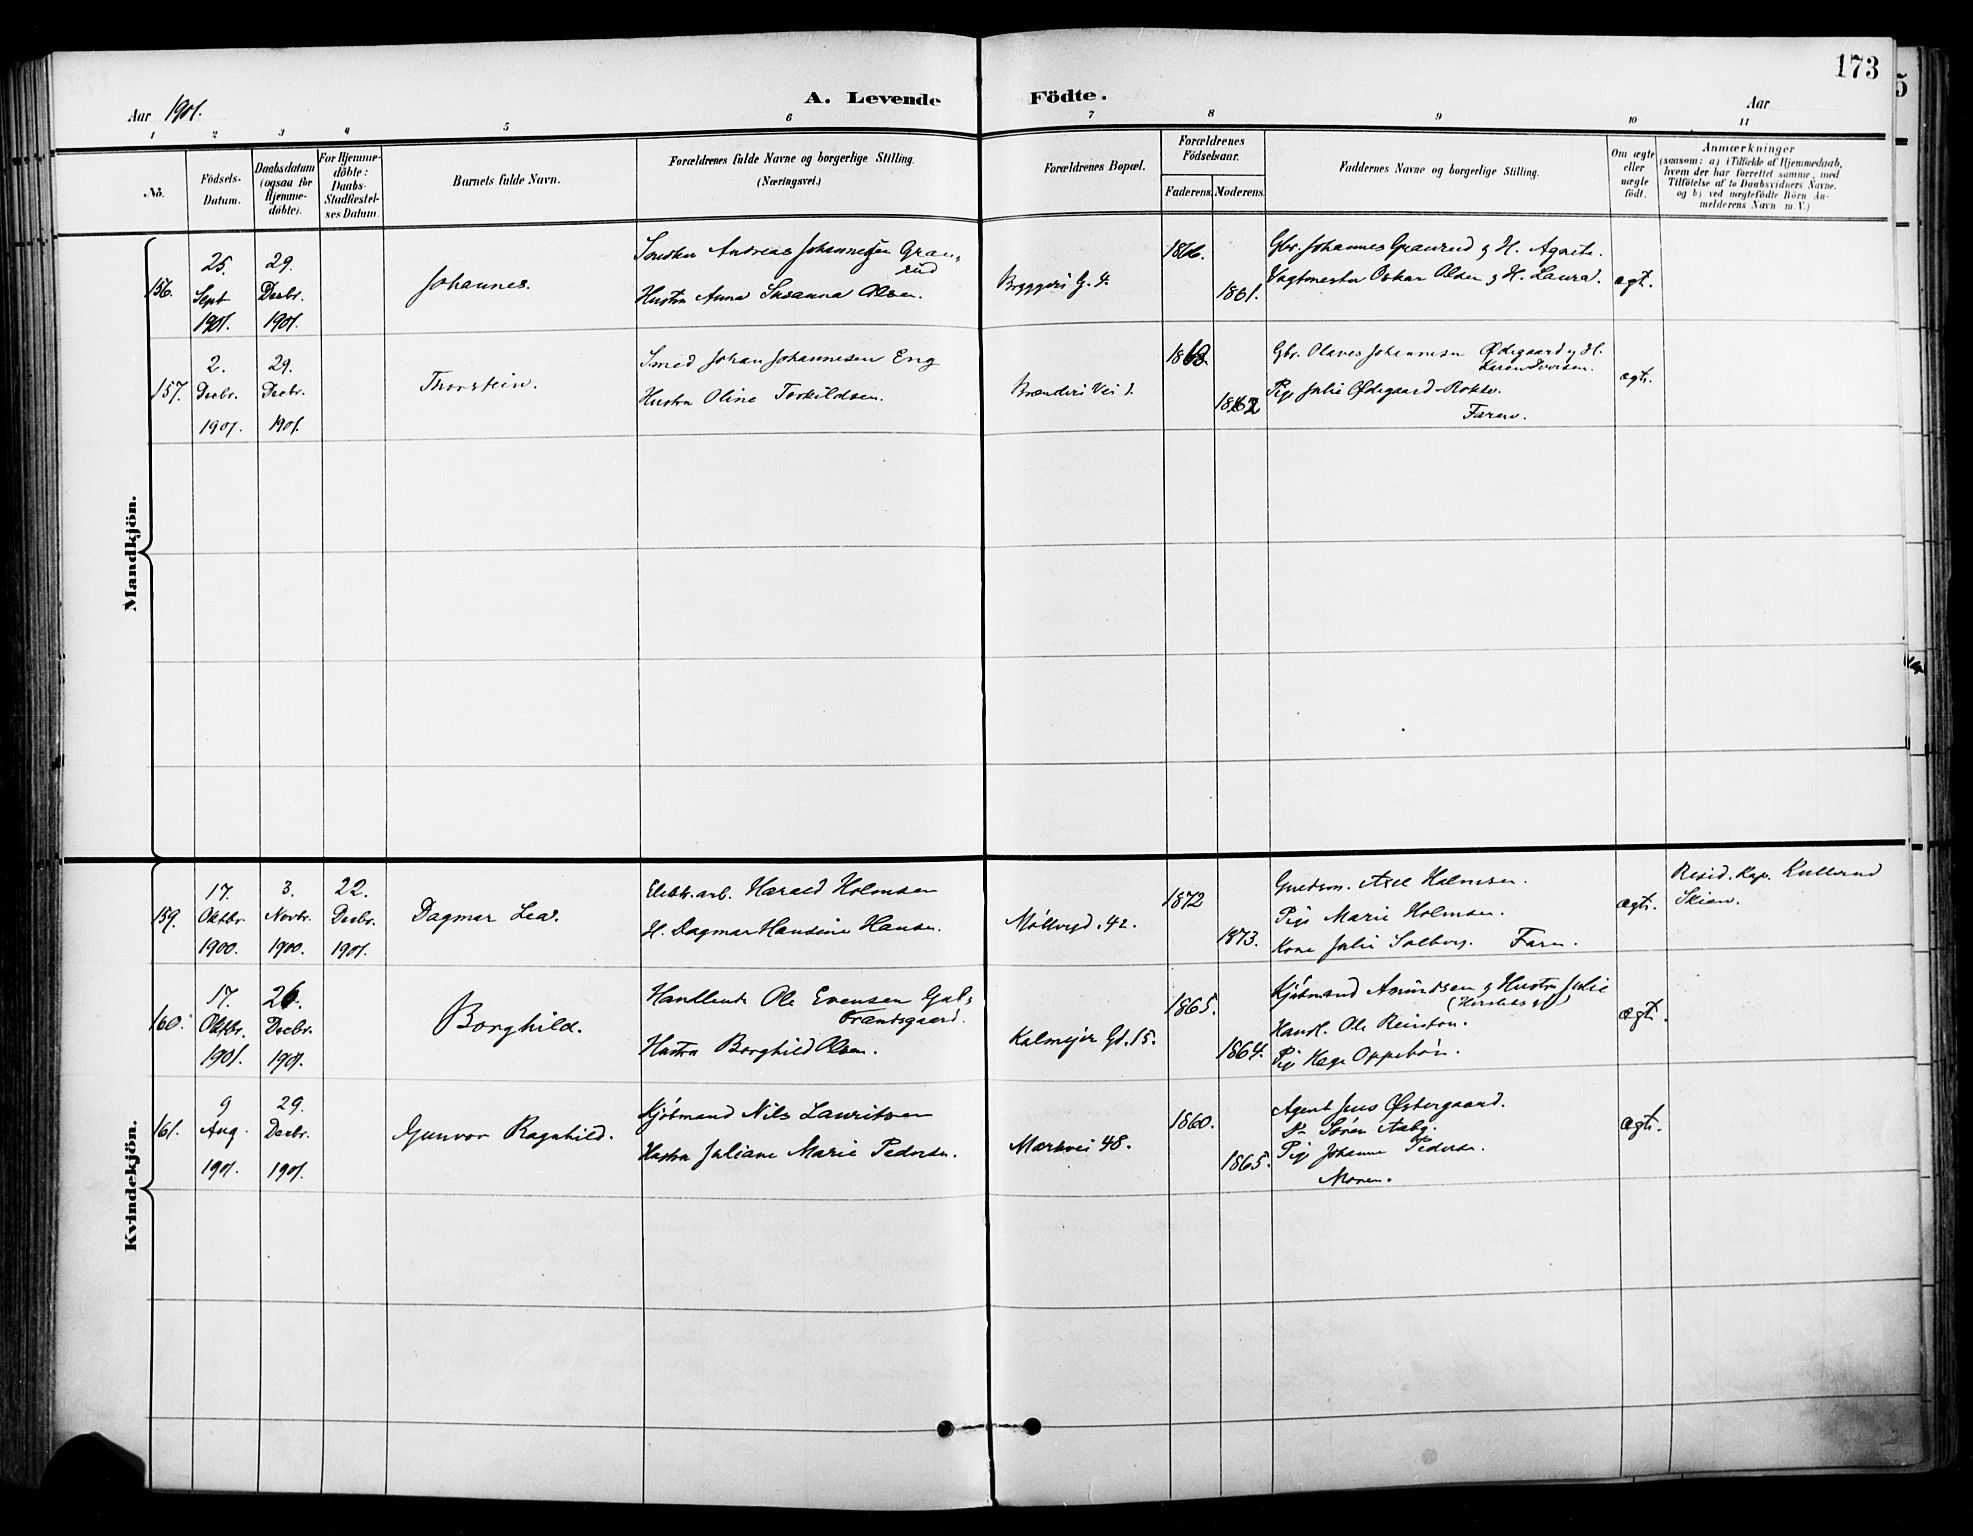 173
Aar 1901.
A. Levende Födte.
Aar
1 2 3 4 5 6 7 8 9 10 11
No.
Födsels-Datum.
Daabsdatum (ogsaa for Hjemme-döbte).
For Hjemme-döbte: Daabs-Stadfæstel-ses Datum.
Barnets fulde Navn.
Forældrenes fulde Navne og borgerlige Stilling. (Næringsvei.)
Forældrenes Bopæl.
Forældrenes Födselsaar.
Faderens. Moderens.
Faddernes Navne og borgerlige Stilling.
Om ægte eller uægte födt.
Anmærkninger
(saasom: a) i Tilfælde af Hjemmedaab,
hvem der har forrettet samme, med
Tilföielse af to Daabsvidners Navne,
og b) ved uægtefödte Börn An-
melderens Navn m. V.)
Mandkjön.
156.
25. Sept 1901.
29. Decbr. 1901.
Johannes.
Snedker Andreas Johannesen Gran-
rud
Hustru Anna Susanna Olsen.
Bryggeri G. 4.
1866.
1861.
Gbr. Johannes Granrud & H. Agnete.
Vagtmester Oskar Olsen & H. Laura.
ægt.
157.
2. Decbr. 1901.
29. Decbr. 1901.
Thorstein.
Smed Johan Johannesen Eng
Hustru Oline Torkildsen.
Brænderi Vei 1.
1868.
1862
Gbr. Olaves Johannesen Ødegaard & H.
Pige Julie Ødegaard
Faren.
ægt.
Kvindekjön.
159.
17. Oktbr. 1900.
3. Novbr. 1900.
22. Decbr. 1901.
Dagmar Lea.
Elektr. arb. Harald Holmsen
H. Dagmar Hansine Hansen.
Møllergd. 42.
1872
1873.
Axel Holmsen.
Pige Marie Holmsen.
Kone Julie Solberg. Faren.
ægt.
Resid. Kap. Kullerud
Skien.
160.
17. Oktbr. 1901.
26. Decbr. 1901.
Borghild.
Handlende Ole Evensen Gul-
brandsgaard.
Hustru Borghild Olsen.
Kalmeyer Gd. 15.
1865.
1864.
Kjøbmand Amundsen & Hustru Julie
Handl. Ole Reinton.
Pige Hege Oppebøn.
ægt.
161.
9 Aug. 1901.
29. Decbr. 1901.
Gunvor Ragnhild.
Kjøbmand Nils Lauritsen
Hustru Juliane Marie Pedersen.
Markvei 48.
1860.
1865.
Agent Jens Østergaard.
Do Søren Aaby.
Pige Johanne Pedersen.
Moren.
ægt.